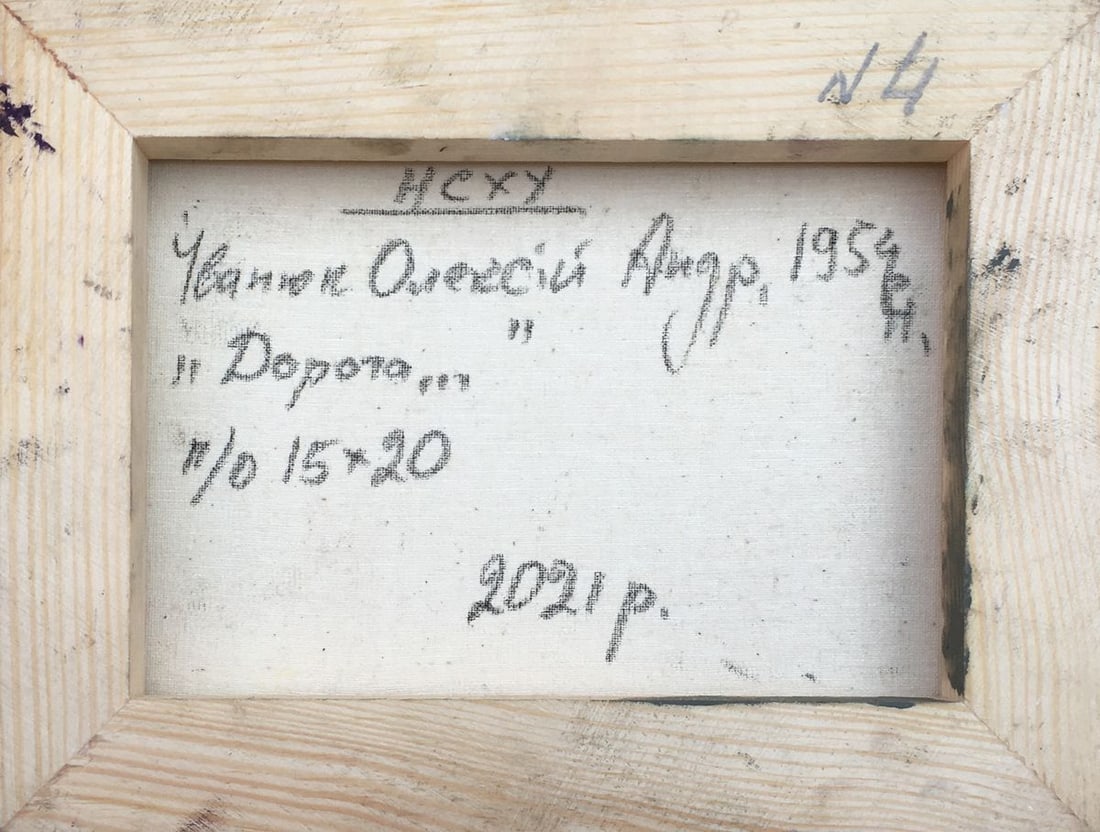 N4
НСХУ
Іванюк Олексій Андр. 1954 р.н.
"Дорога..."
п/о 15×20
2021 р.